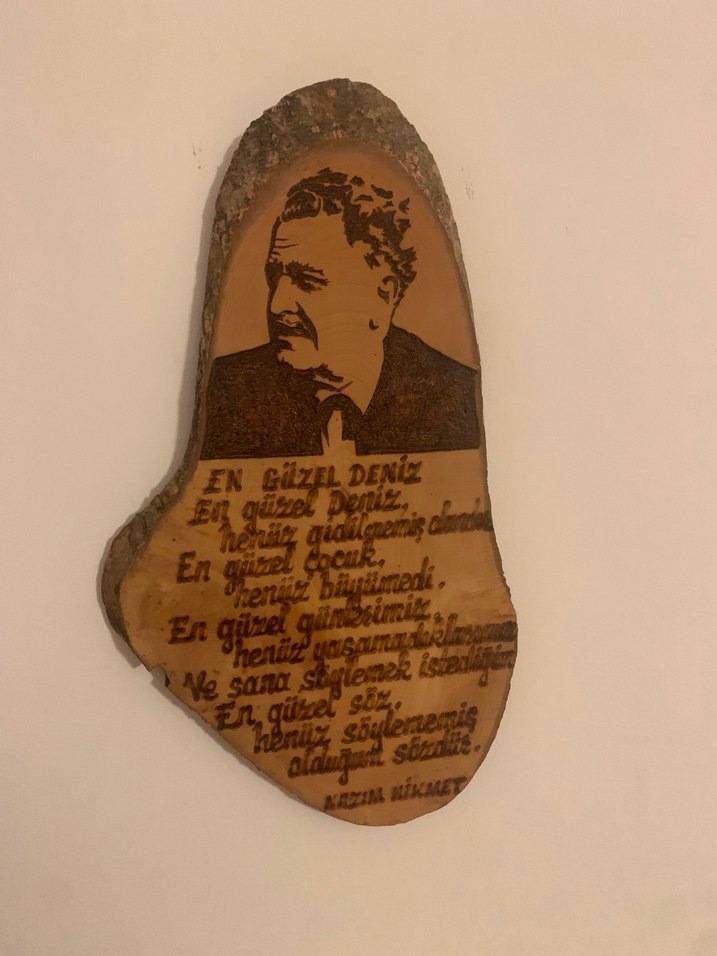 EN GÜZEL DENİZ
En güzel Deniz,
henüz gidilmemiş olandır
En güzel çocuk,
henüz büyümedi.
En güzel günlerimiz,
henüz yaşamadıklarımız
Ve sana söylemek istediğim
En güzel söz,
henüz söylememiş
olduğum sözdür.
NAZIM HİKMET